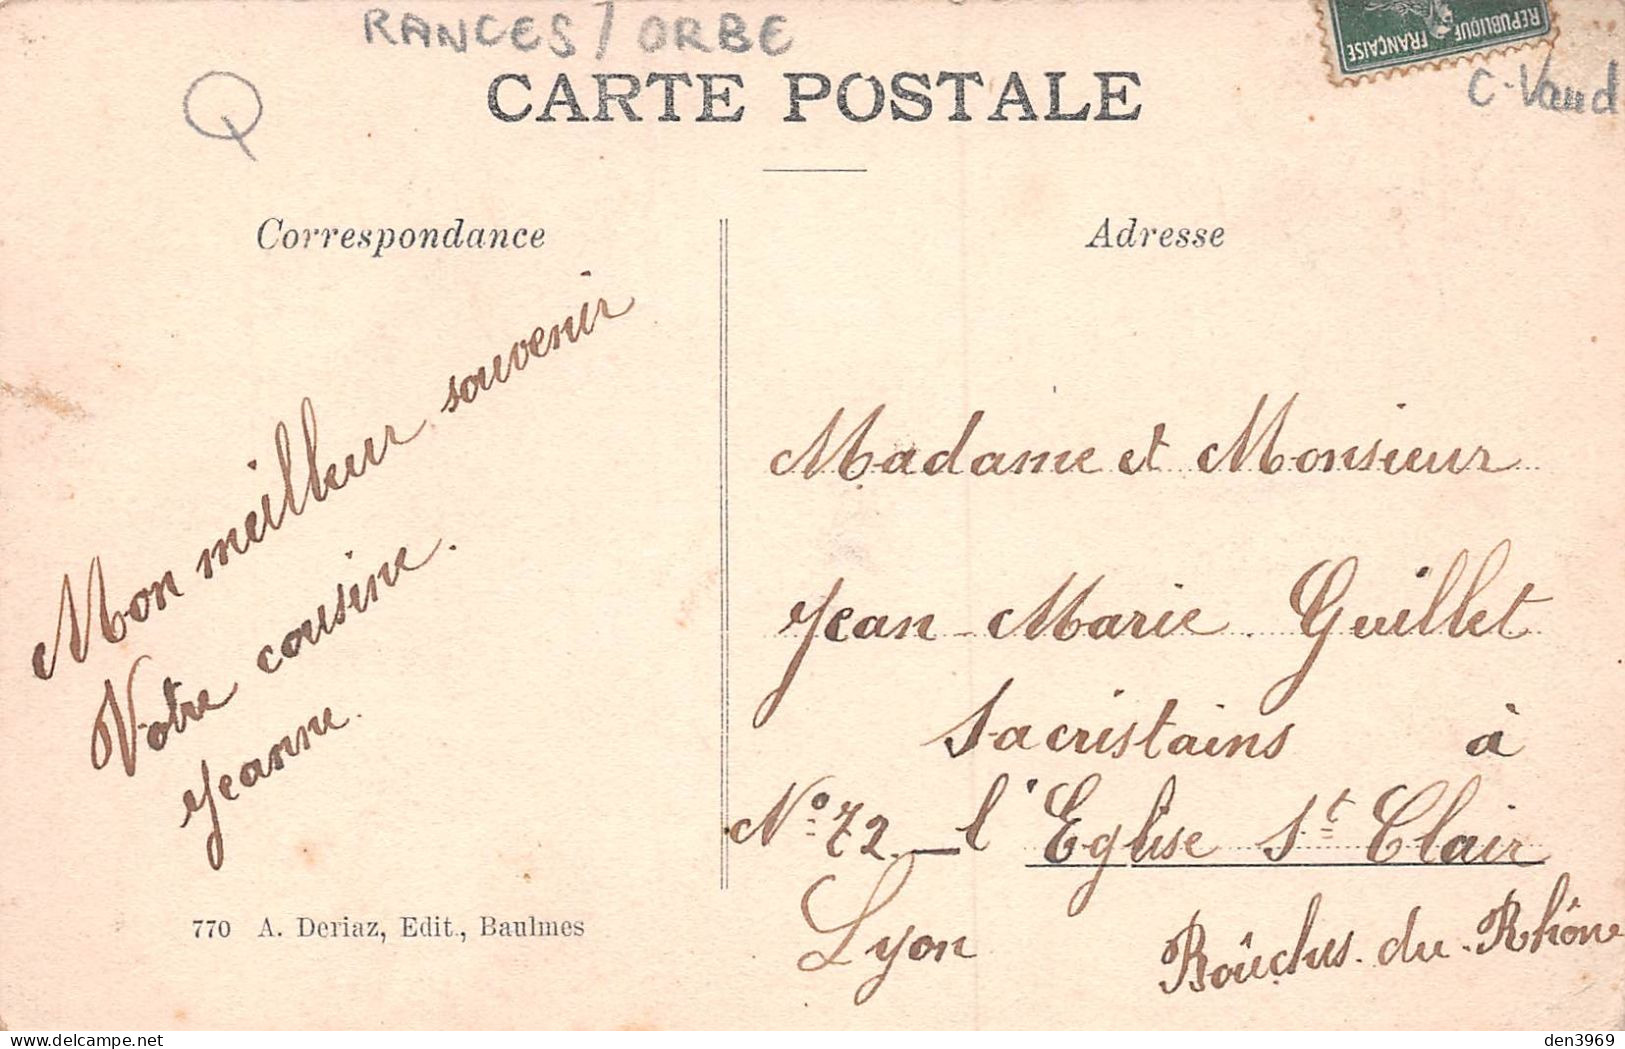 RANCES / ORBE
REPUBLIQUE FRANÇAISE
C. Vaud
Q
CARTE POSTALE
Correspondance
Adresse
Mon meilleur souvenir
Votre cousine.
Jeanne.
Madame et Monsieur
Jean-Marie Guillet
Sacristains à
N° 72 - l'Eglise St Clair
Lyon
Boûches du Rhône
770 A. Deriaz, Edit., Baulmes
den3969